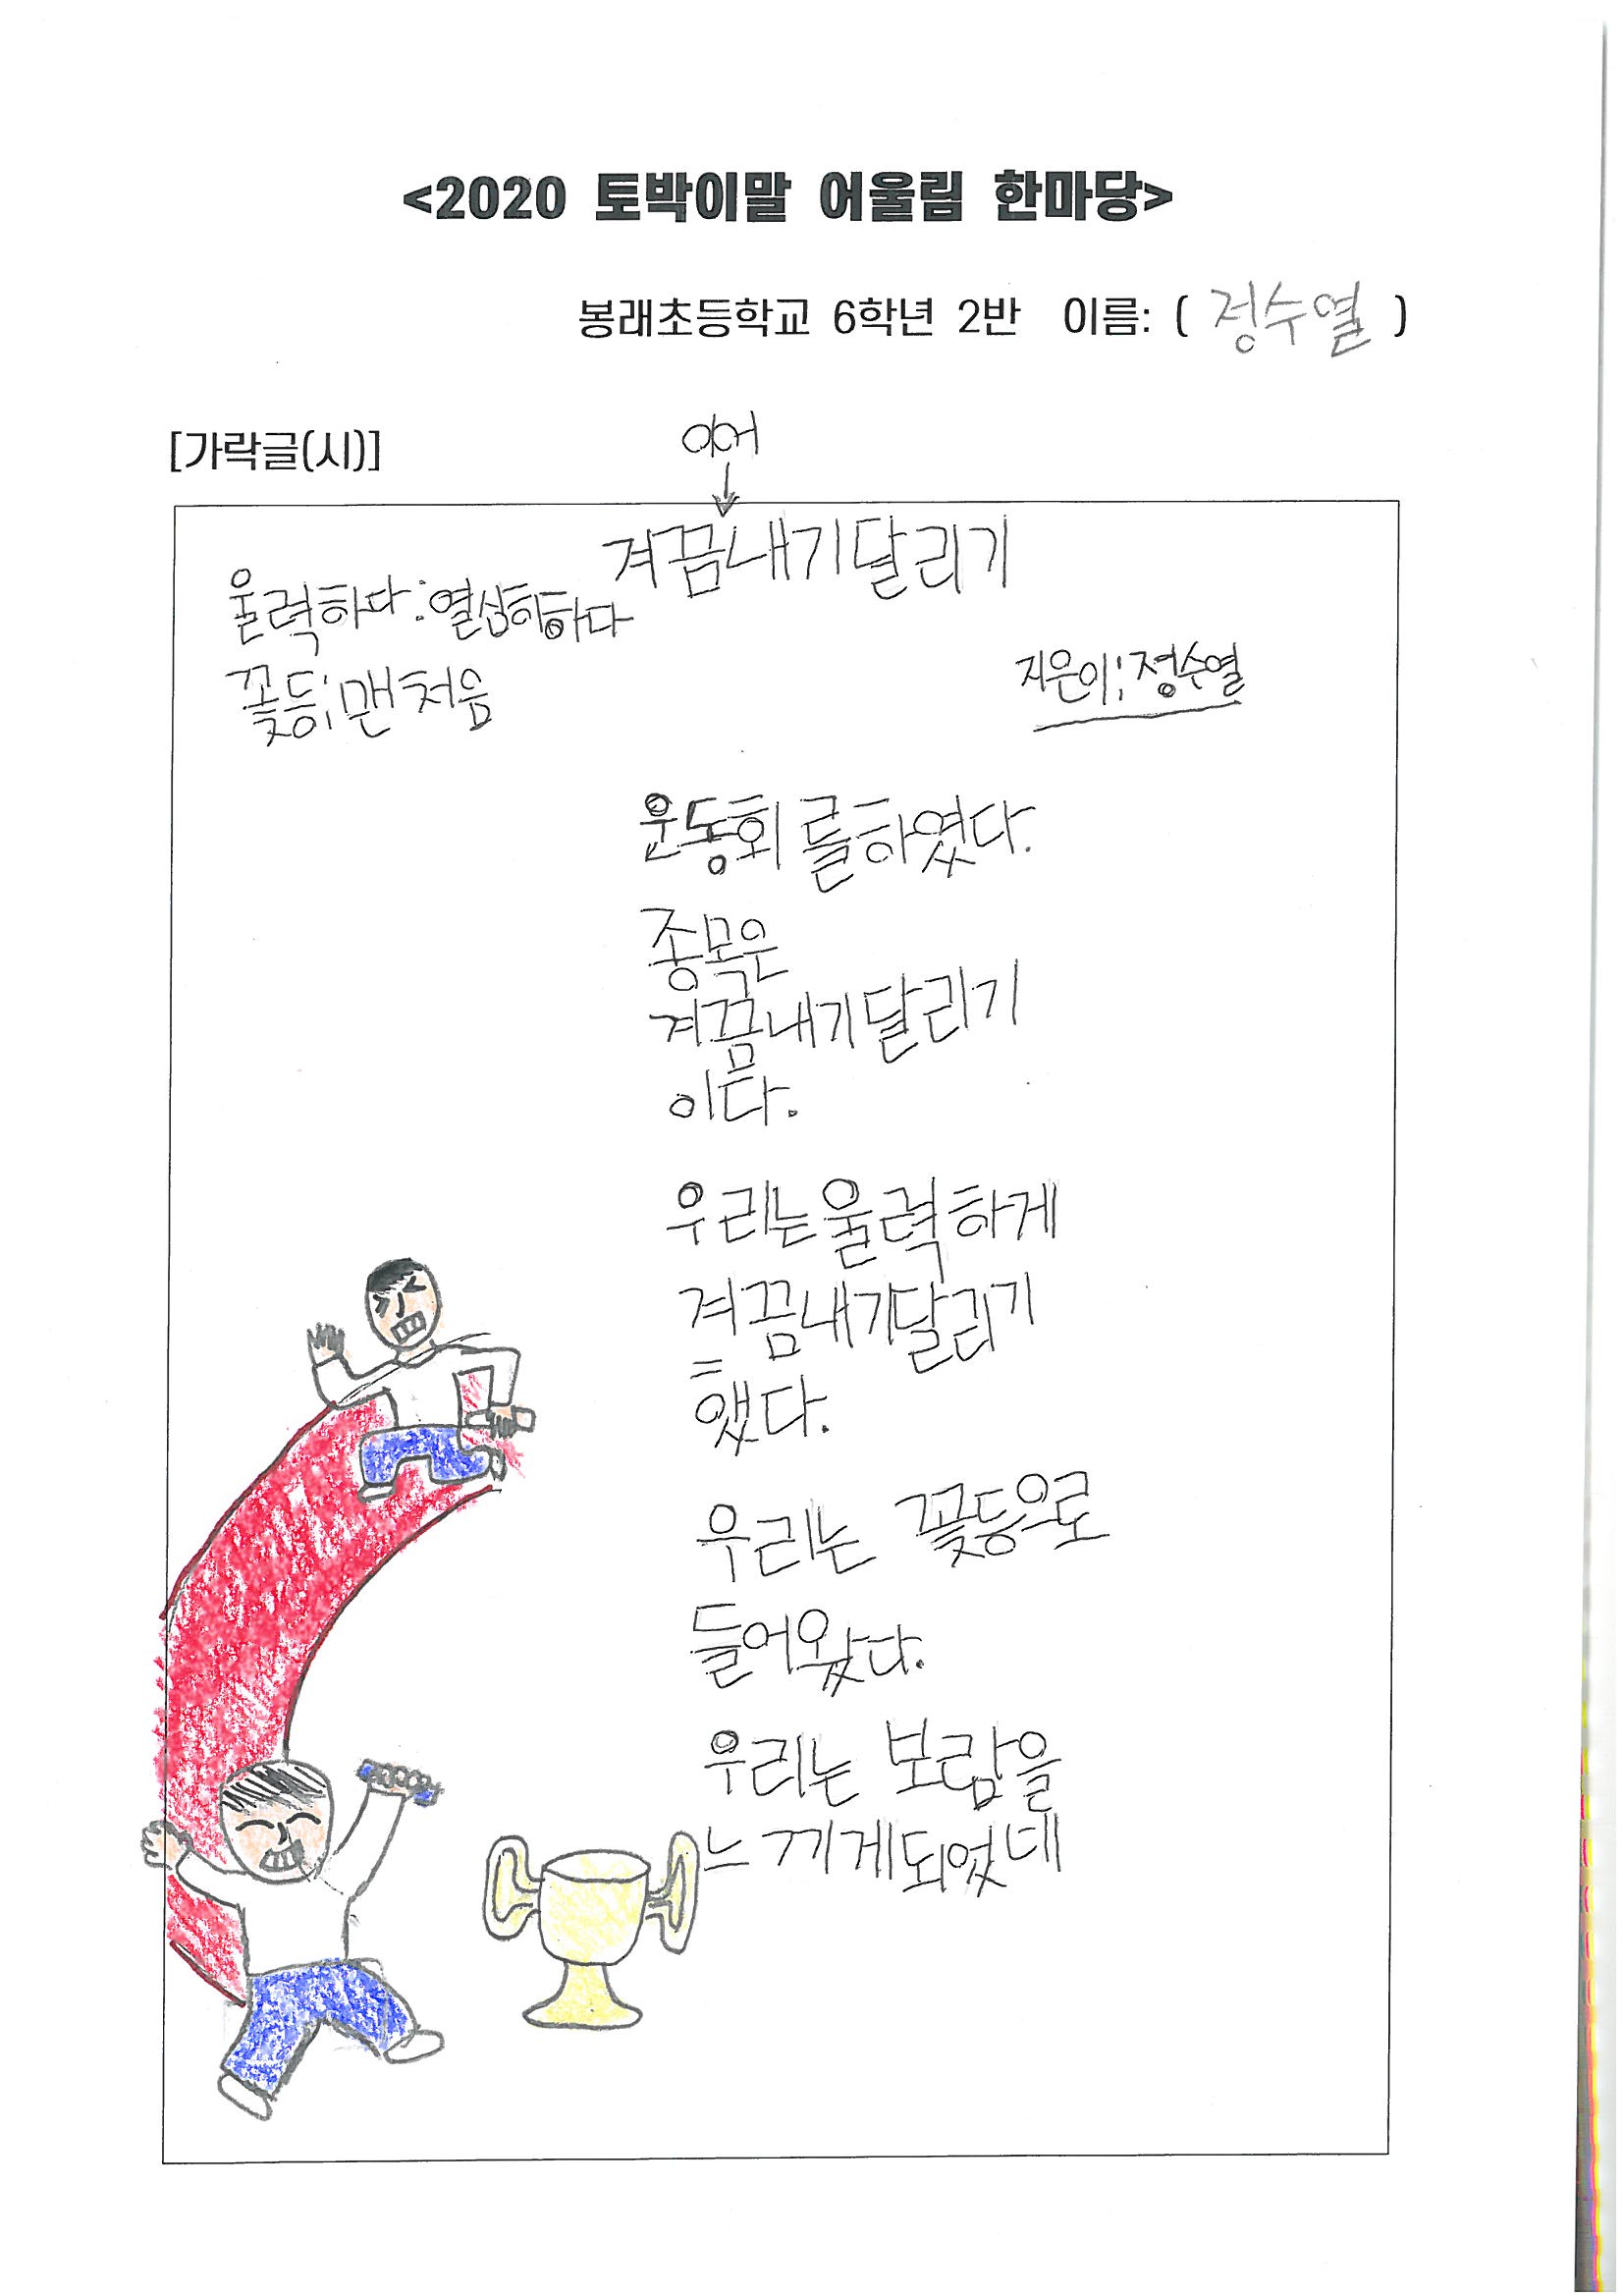 <2020 토박이말 어울림 한마당>
봉래초등학교 6학년 2반 이름: ( 정수열 )
[가락글(시)]
이어
겨끔내기달리기
울력하다:열심히하다
꽃등;맨처음
지은이;정수열
운동회를하였다.
종목은
겨끔내기달리기
이다.
우리는울력하게
겨끔내기달리기
했다.
우리는 꽃등으로
들어왔다.
우리는 보람을
느끼게되었네